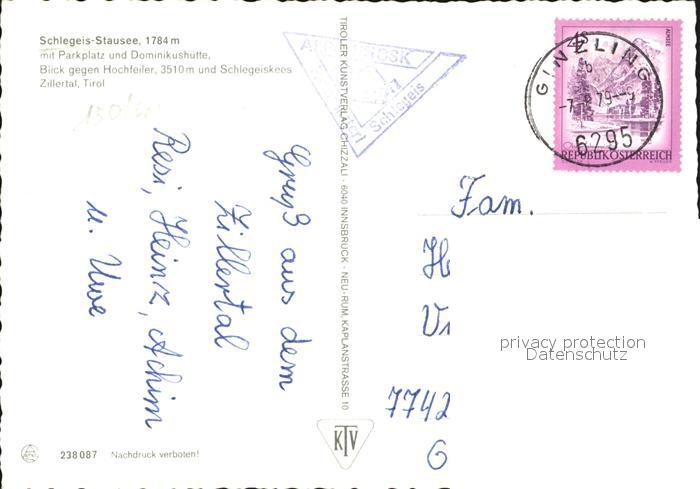 Schlegeis-Stausee, 1784 m
mit Parkplatz und Dominikushütte,
Blick gegen Hochfeiler, 3510 m und Schlegeiskees
Zillertal, Tirol
Gruß aus dem
Zillertal
Resi, Heinz, Achim
u. Uwe
TIROLER KUNSTVERLAG CHIZZALI · 6040 INNSBRUCK - NEU-RUM, KAPLANSTRASSE 10
KTV
238087 Nachdruck verboten!
Schlegeis
GINZLING
79--9
6295
ALMSEE
REPUBLIK ÖSTERREICH
Fam.
H
7742
G
privacy protection
Datenschutz